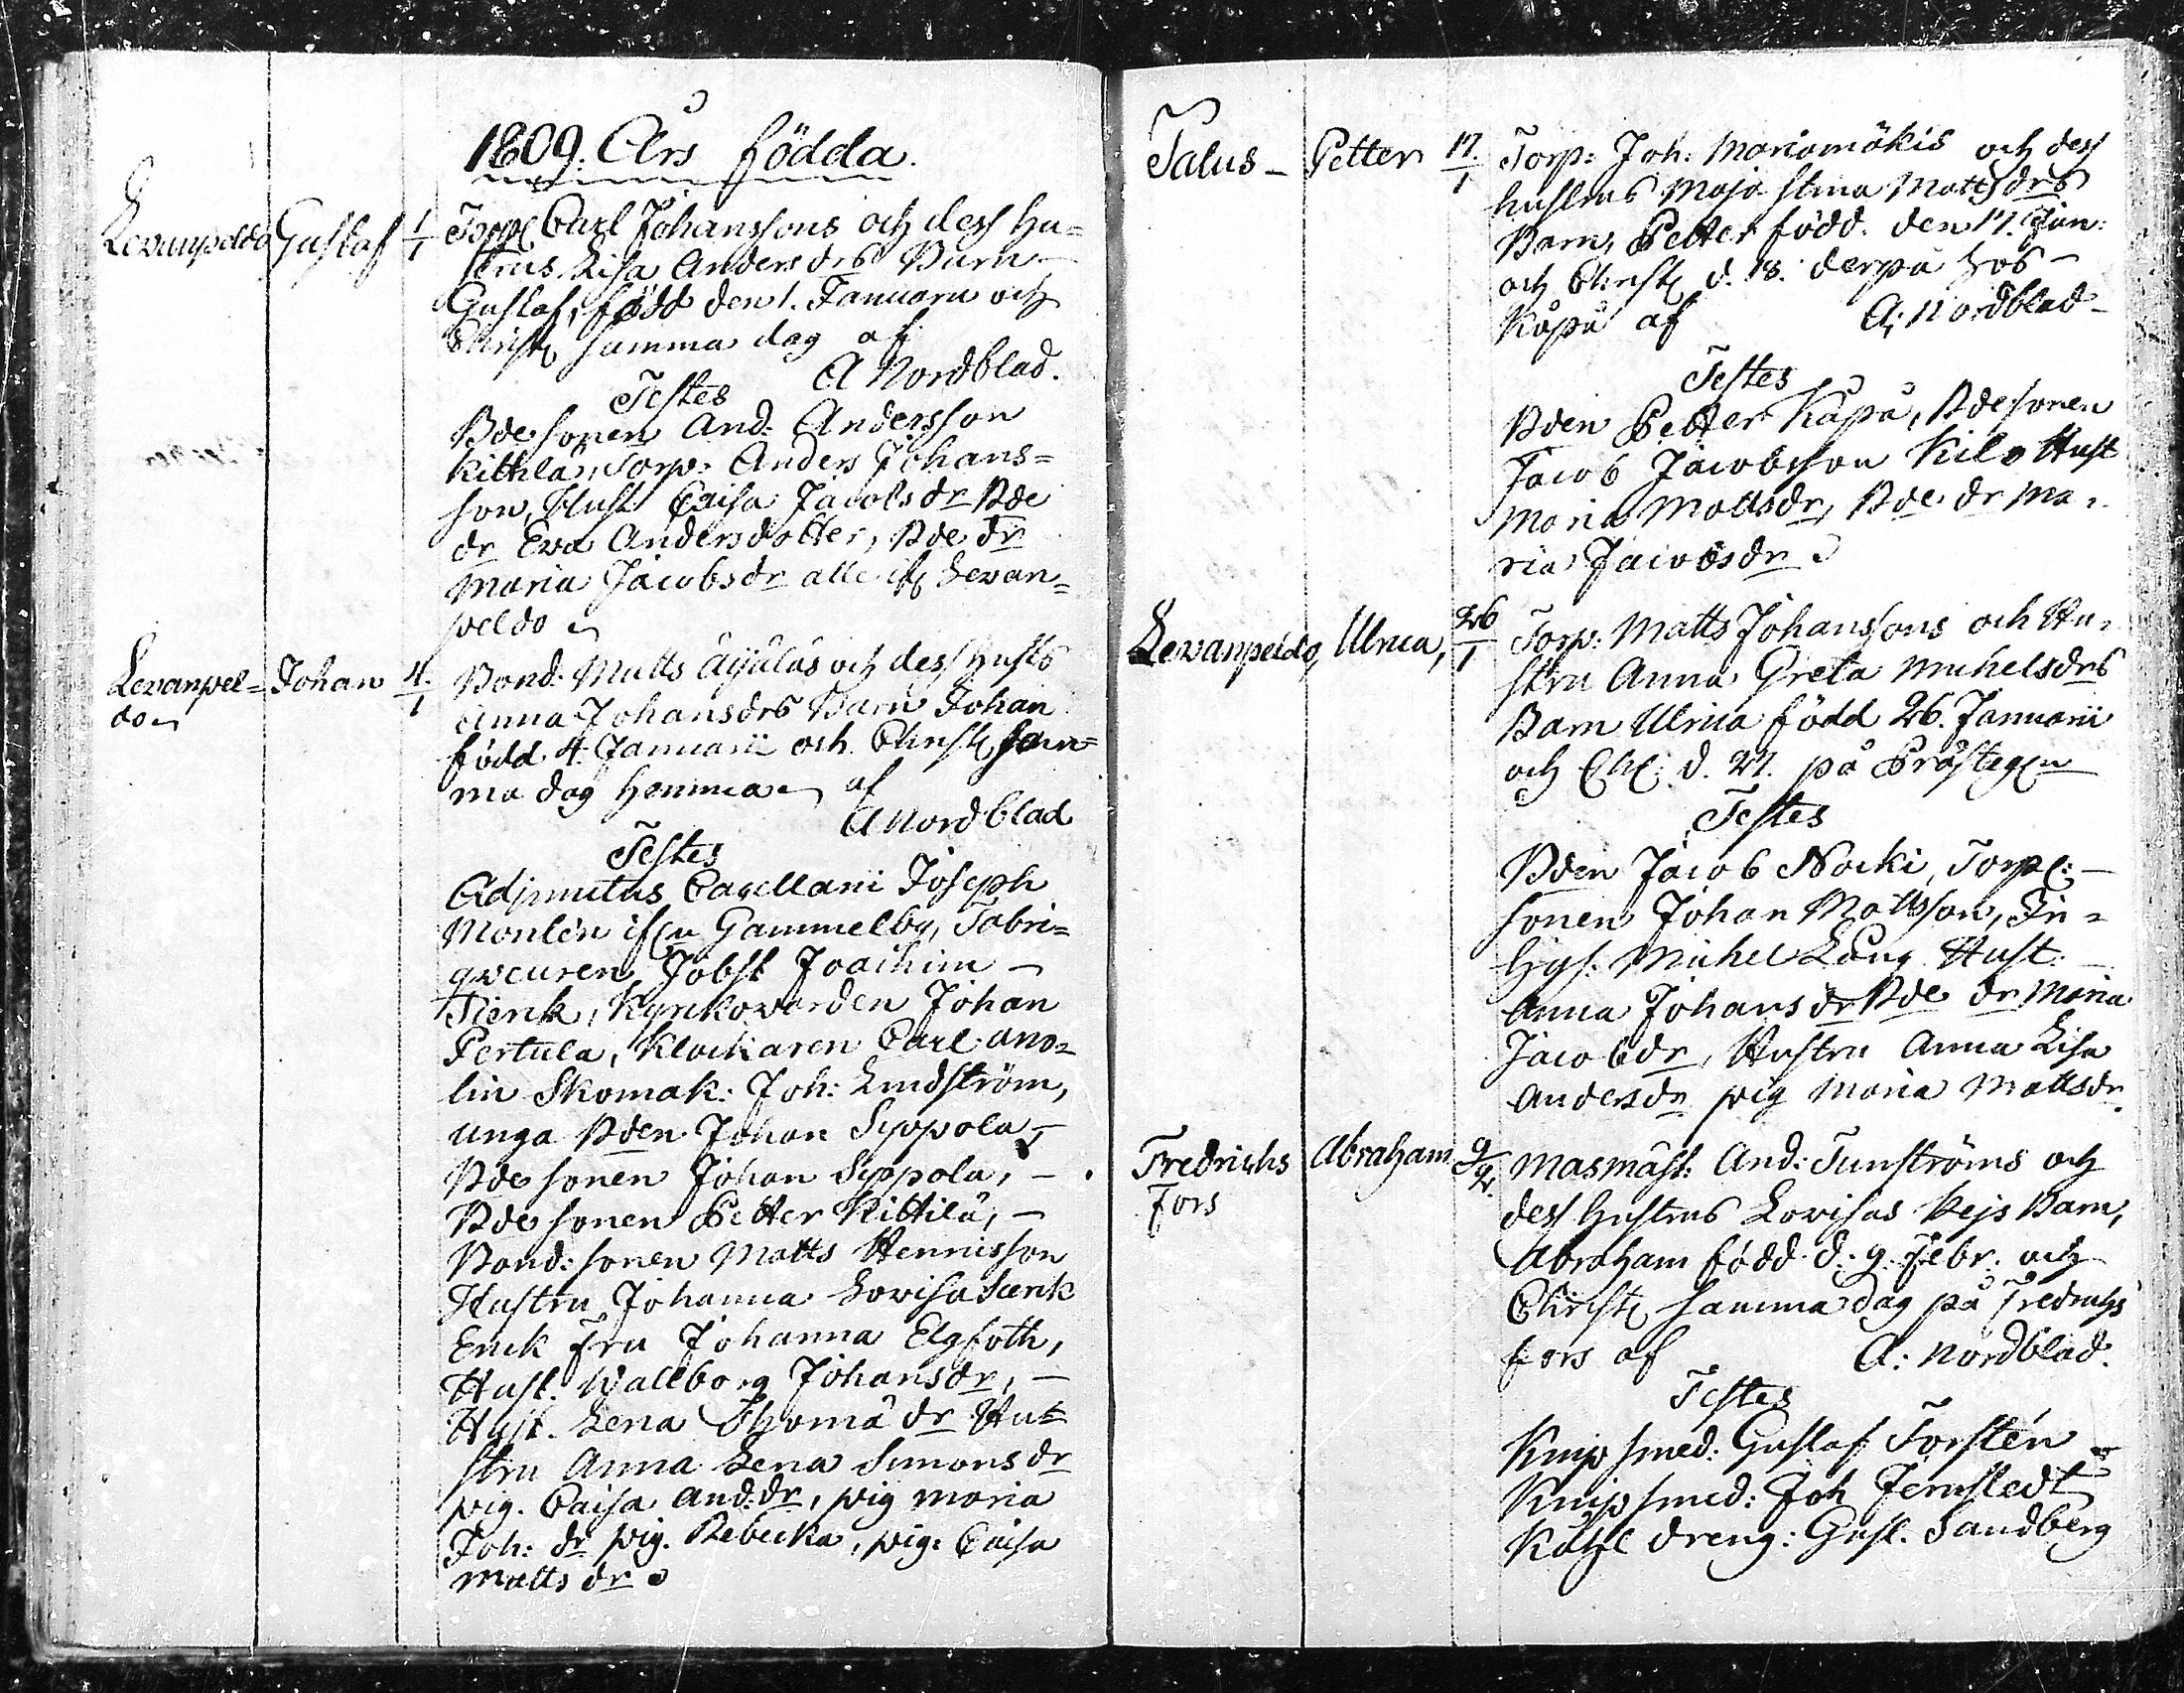 1809. Års födda.
Levanpeldo Gustaf 1/1 Torp: Carl Johanssons och dess Hu=
strus Lisa Anders drs Barn
Gustaf, född den 1. Januarii och
Christ: samma dag af
A Nordblad.
Testes
Bde sonen And: Andersson
Kittilä, Torp: Anders Johans=
son, Hust Caisa Jacobs dr Bde
dr Eva Andersdotter, Bde dr
Maria Jacobsdr alle ifr Levan=
peldo
Levanpel= Johan 4/1 Bond: Matts Äijäläs och dess Hust:s
do
Anna Johansdrs Barn Johan
född 4. Januarii och Christ: sam=
ma dag hemma af
A Nordblad
Testes
Adjunctus Capellani Joseph
Monlén ifrn Gammelby, Fabri=
qveuren Jobst Joachim
Sierck, Kyrkovärden Johan
Pertula, Klockaren Carl Avo=
lin Skomak: Joh: Lindström,
unga Bden Johan Sippola,
Bde sonen Johan Sippola,
Bde sonen Petter Kittilä,
Bond: sonen Matts Hennisson
Hustru Johanna Lovisa Sierck
Enck Fru Johanna Elgfoth,
Hust. Wallborg Johansdr,
Hust. Lena Thomä dr Hu=
stru Anna Lena Simons dr
pig. Caisa And: dr, pig Maria
Joh: dr pig. Rebecka, pig: Caisa
Matts dr
Talus Petter 17./1 Torp: Joh: Mariamäkis och dess
hustrus Maja Stina Mattsdrs
Barn, Petter född. den 17. Jan:
och Christ: d. 18. derpå hos
Kåpå af A: Nordblad
Testes
Bden Petter Kåpå, Bde sonen
Jacob Jacobsson Kilo Hust
Maria Mattsdr, Bde dr Ma=
ria Jacobsdr
Levanpeldo, Ulrica, 26/1 Torp: Matts Johanssons och Hu=
stru Anna Greta Michelsdrs
Barn Ulrica född 26. Januarii
och Chr: d. 27. på Prästegn
Testes
Bden Jacob Nocki, Torp:
sonen Johan Mattsson, In=
hys: Michel Lång Hust:
Anna Johansdr Bde dr Maria
Jacobdr, Hustru Anna Lisa
Andersdr pig Maria Mattsdr.
Fredrichs Abraham 9/2. Masmäst: And: Tunströms och
fors
dess hustrus Lovisas Kejs Barn,
Abraham född d. 9. Febr: och
Christ: samma dag på Fredrichs
fors af A: Nordblad.
Testes
Knip smed: Gustaf Forstén
Knip smed: Joh Fernstedt
Kåhl dreng: Gust. Sandberg